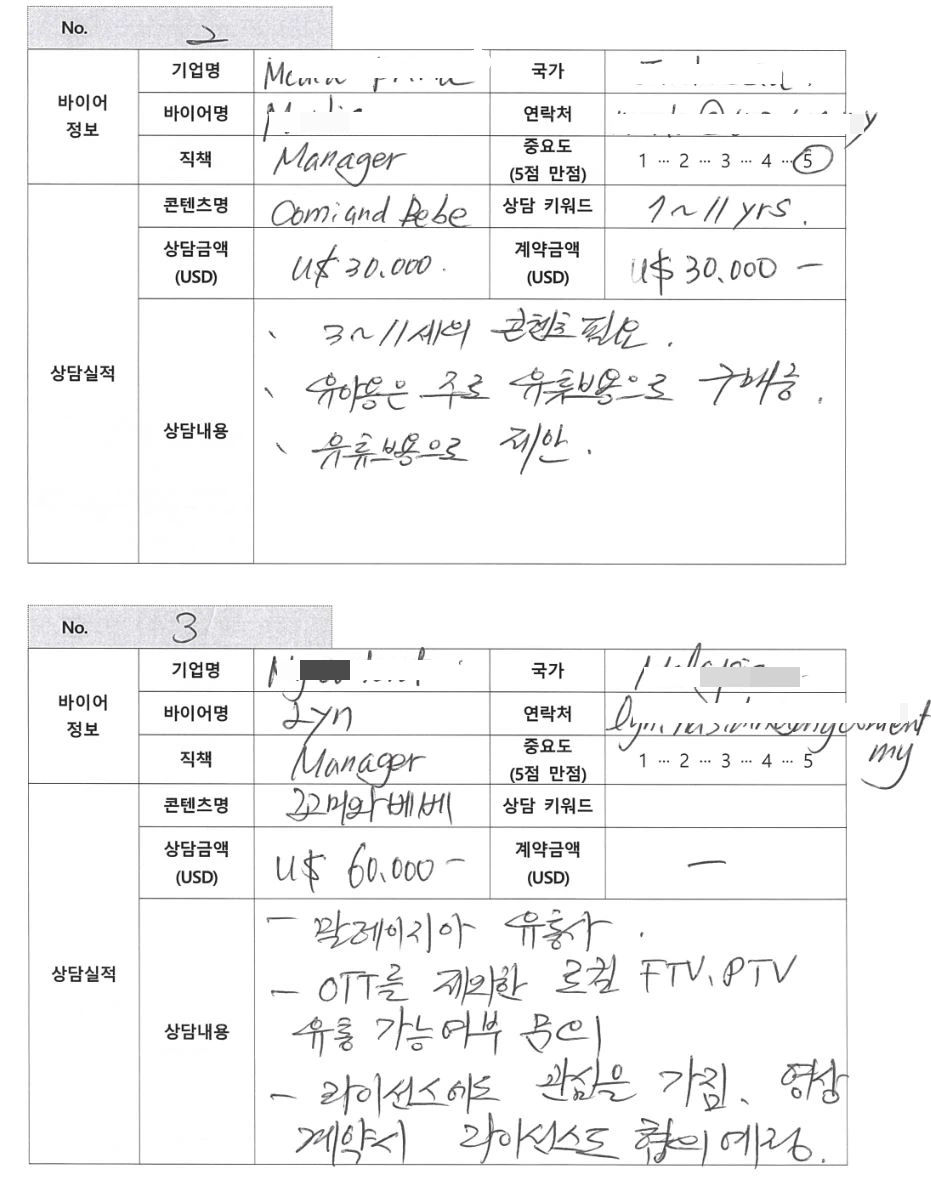 No. 2
바이어 정보
기업명
국가
바이어명
연락처
직책 Manager
중요도 (5점 만점) 1 ··· 2 ··· 3 ··· 4 ··· 5
상담실적
콘텐츠명 Comiand Bebe
상담 키워드 7~11 yrs.
상담금액 (USD) U$ 30.000.
계약금액 (USD) U$ 30.000 -
상담내용
、 3~11세의 콘텐츠 필요.
、 유아용은 주로 유튜브용으로 구매중.
、 유튜브용으로 제안.
No. 3
바이어 정보
기업명
국가
바이어명 Lyn
연락처
my
직책 Manager
중요도 (5점 만점) 1 ··· 2 ··· 3 ··· 4 ··· 5
상담실적
콘텐츠명 꼬미와베베
상담 키워드
상담금액 (USD) U$ 60.000 -
계약금액 (USD) -
상담내용
- 말레이지아 유통사.
- OTT를 제외한 로컬 FTV、PTV
유통 가능여부 문의
- 라이선스에도 관심을 가짐、 영상
계약시 라이선스도 협의 예정.